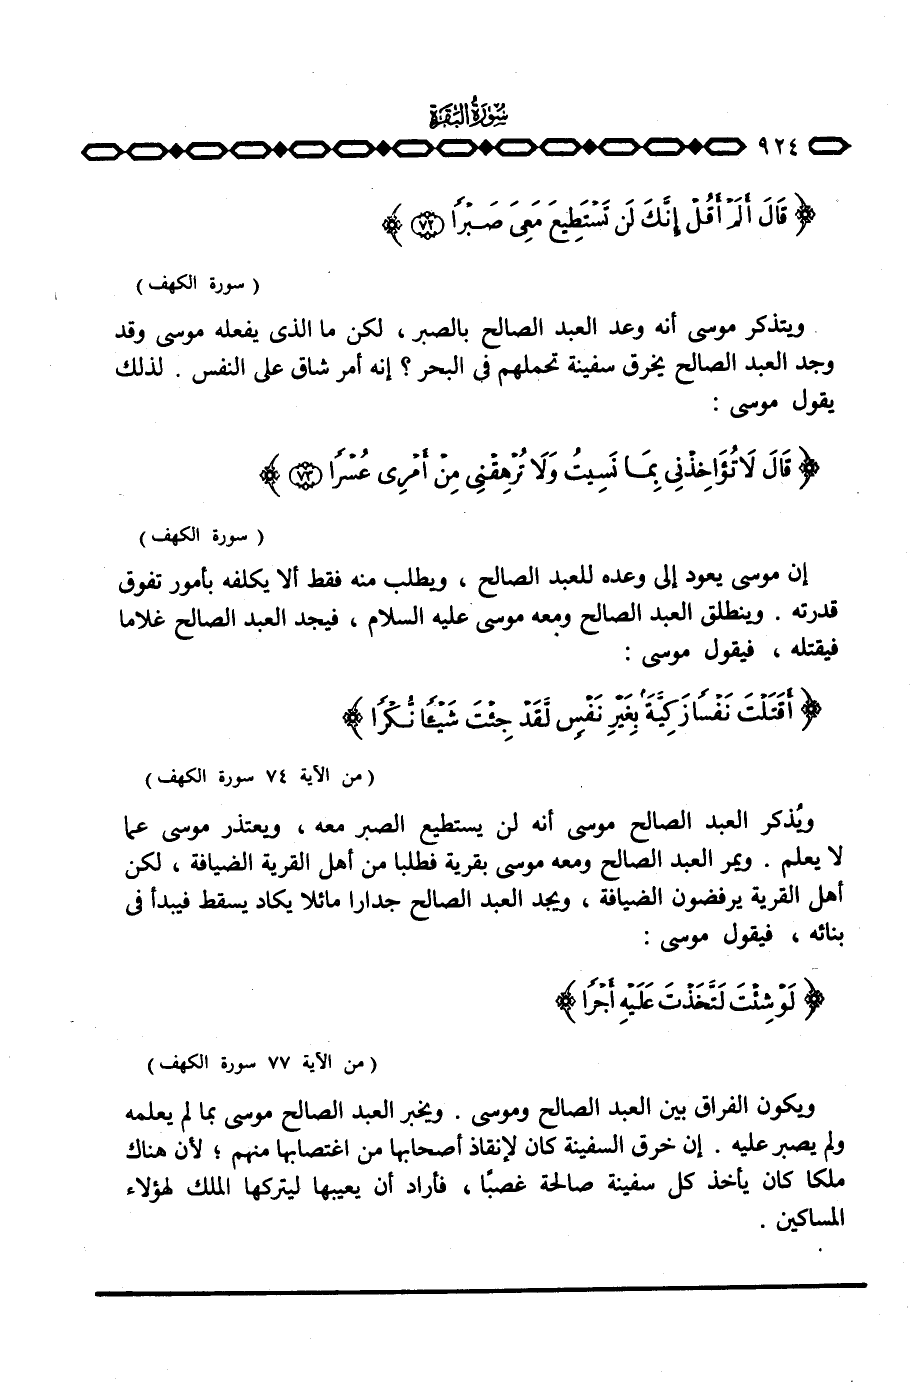 سورة البقرة
٩٢٤
﴿ قَالَ أَلَمْ أَقُلْ إِنَّكَ لَن تَسْتَطِيعَ مَعِىَ صَبْرًا ۝٧٢ ﴾
( سورة الكهف )
ويتذكر موسى أنه وعد العبد الصالح بالصبر ، لكن ما الذى يفعله موسى وقد
وجد العبد الصالح يخرق سفينة تحملهم فى البحر ؟ إنه أمر شاق على النفس . لذلك
يقول موسى :
﴿ قَالَ لَا تُؤَاخِذْنِى بِمَا نَسِيتُ وَلَا تُرْهِقْنِى مِنْ أَمْرِى عُسْرًا ۝٧٣ ﴾
( سورة الكهف )
إن موسى يعود إلى وعده للعبد الصالح ، ويطلب منه فقط ألا يكلفه بأمور تفوق
قدرته . وينطلق العبد الصالح ومعه موسى عليه السلام ، فيجد العبد الصالح غلاما
فيقتله ، فيقول موسى :
﴿ أَقَتَلْتَ نَفْسًا زَكِيَّةً بِغَيْرِ نَفْسٍ لَّقَدْ جِئْتَ شَيْئًا نُّكْرًا ﴾
( من الآية ٧٤ سورة الكهف )
ويُذكر العبد الصالح موسى أنه لن يستطيع الصبر معه ، ويعتذر موسى عما
لا يعلم . ويمر العبد الصالح ومعه موسى بقرية فطلبا من أهل القرية الضيافة ، لكن
أهل القرية يرفضون الضيافة ، ويجد العبد الصالح جدارا مائلا يكاد يسقط فيبدأ فى
بنائه ، فيقول موسى :
﴿ لَوْ شِئْتَ لَتَّخَذْتَ عَلَيْهِ أَجْرًا ﴾
( من الآية ٧٧ سورة الكهف )
ويكون الفراق بين العبد الصالح وموسى . ويخبر العبد الصالح موسى بما لم يعلمه
ولم يصبر عليه . إن خرق السفينة كان لإنقاذ أصحابها من اغتصابها منهم ؛ لأن هناك
ملكا كان يأخذ كل سفينة صالحة غصبًا ، فأراد أن يعيبها ليتركها الملك لهؤلاء
المساكين .